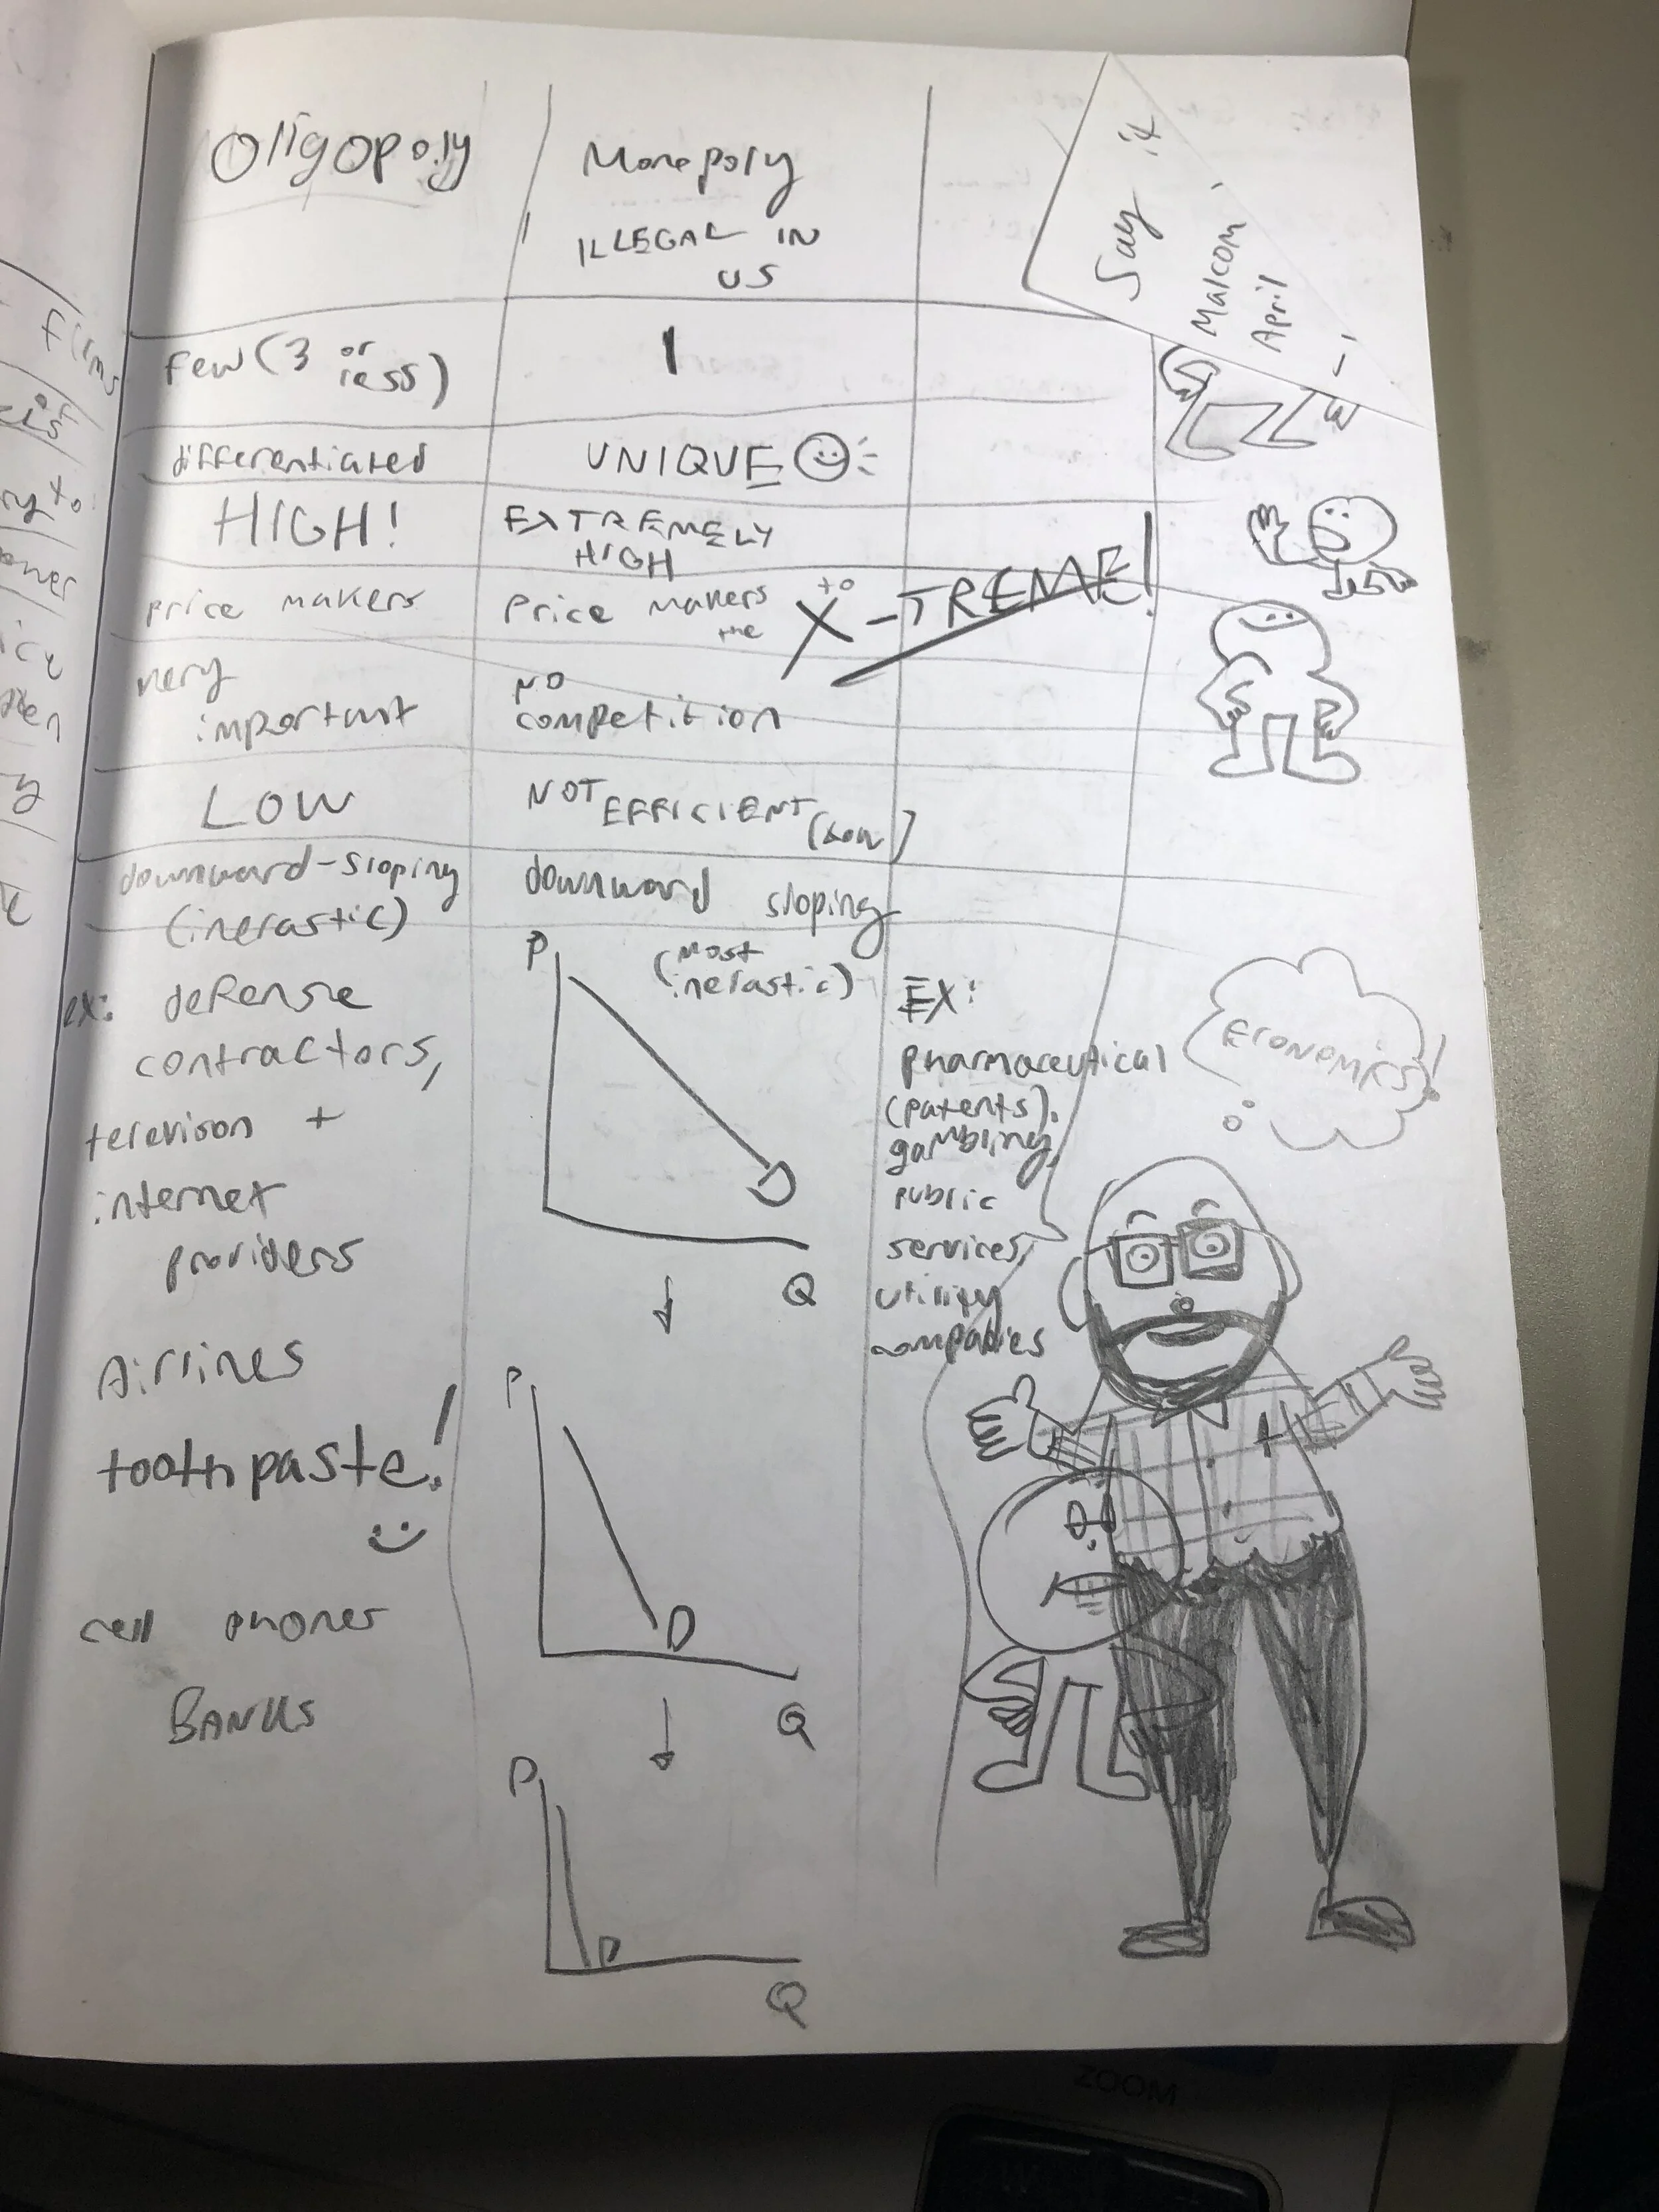 Oligopoly
Monopoly
ILLEGAL IN
US
Say it
Malcom,
April
Firms
Few (3 or
less)
1
differentiated
UNIQUE
HIGH!
EXTREMELY
HIGH
price makers
Price makers
to
the
X-TREME!
very
important
NO
competition
LOW
NOT EFFICIENT (low)
downward-sloping
(inelastic)
downward sloping
(most
inelastic)
ex: defense
contractors,
television +
internet
providers
Airlines
toothpaste!
cell phones
BANKS
P
D
Q
P
D
Q
P
D
Q
EX:
pharmaceutical
(patents),
gambling,
public
services,
utility
compabies
ECONOMICS!
ZOOM